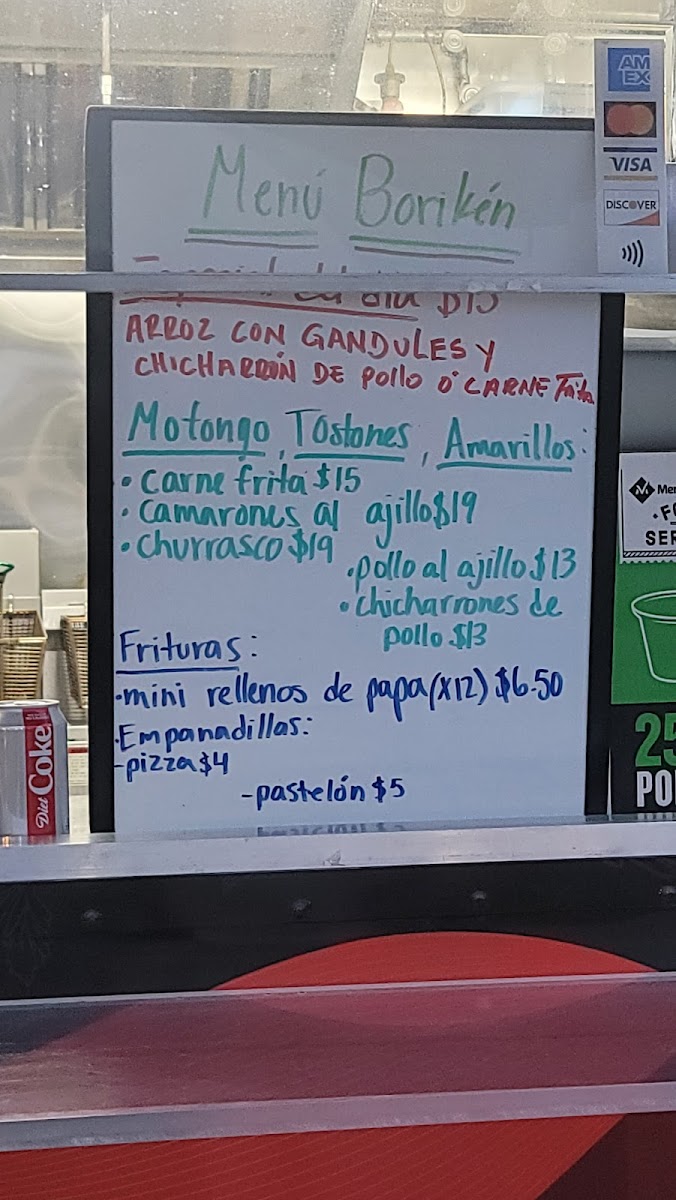 Menú Borikén
Especial del dia $15
ARROZ CON GANDULES Y
CHICHARRÓN DE POllO O CARNE Frita
Mofongo, Tostones, Amarillos:
• carne frita $15
• camarones al ajillo $19
• churrasco $19
• pollo al ajillo $13
• chicharrones de
pollo $13
Frituras:
• mini rellenos de papa (x12) $6.50
• Empanadillas:
- pizza $4
- pastelón $5
AM
EX
VISA
DISCOVER
Diet Coke
Mer
SER
25
PO